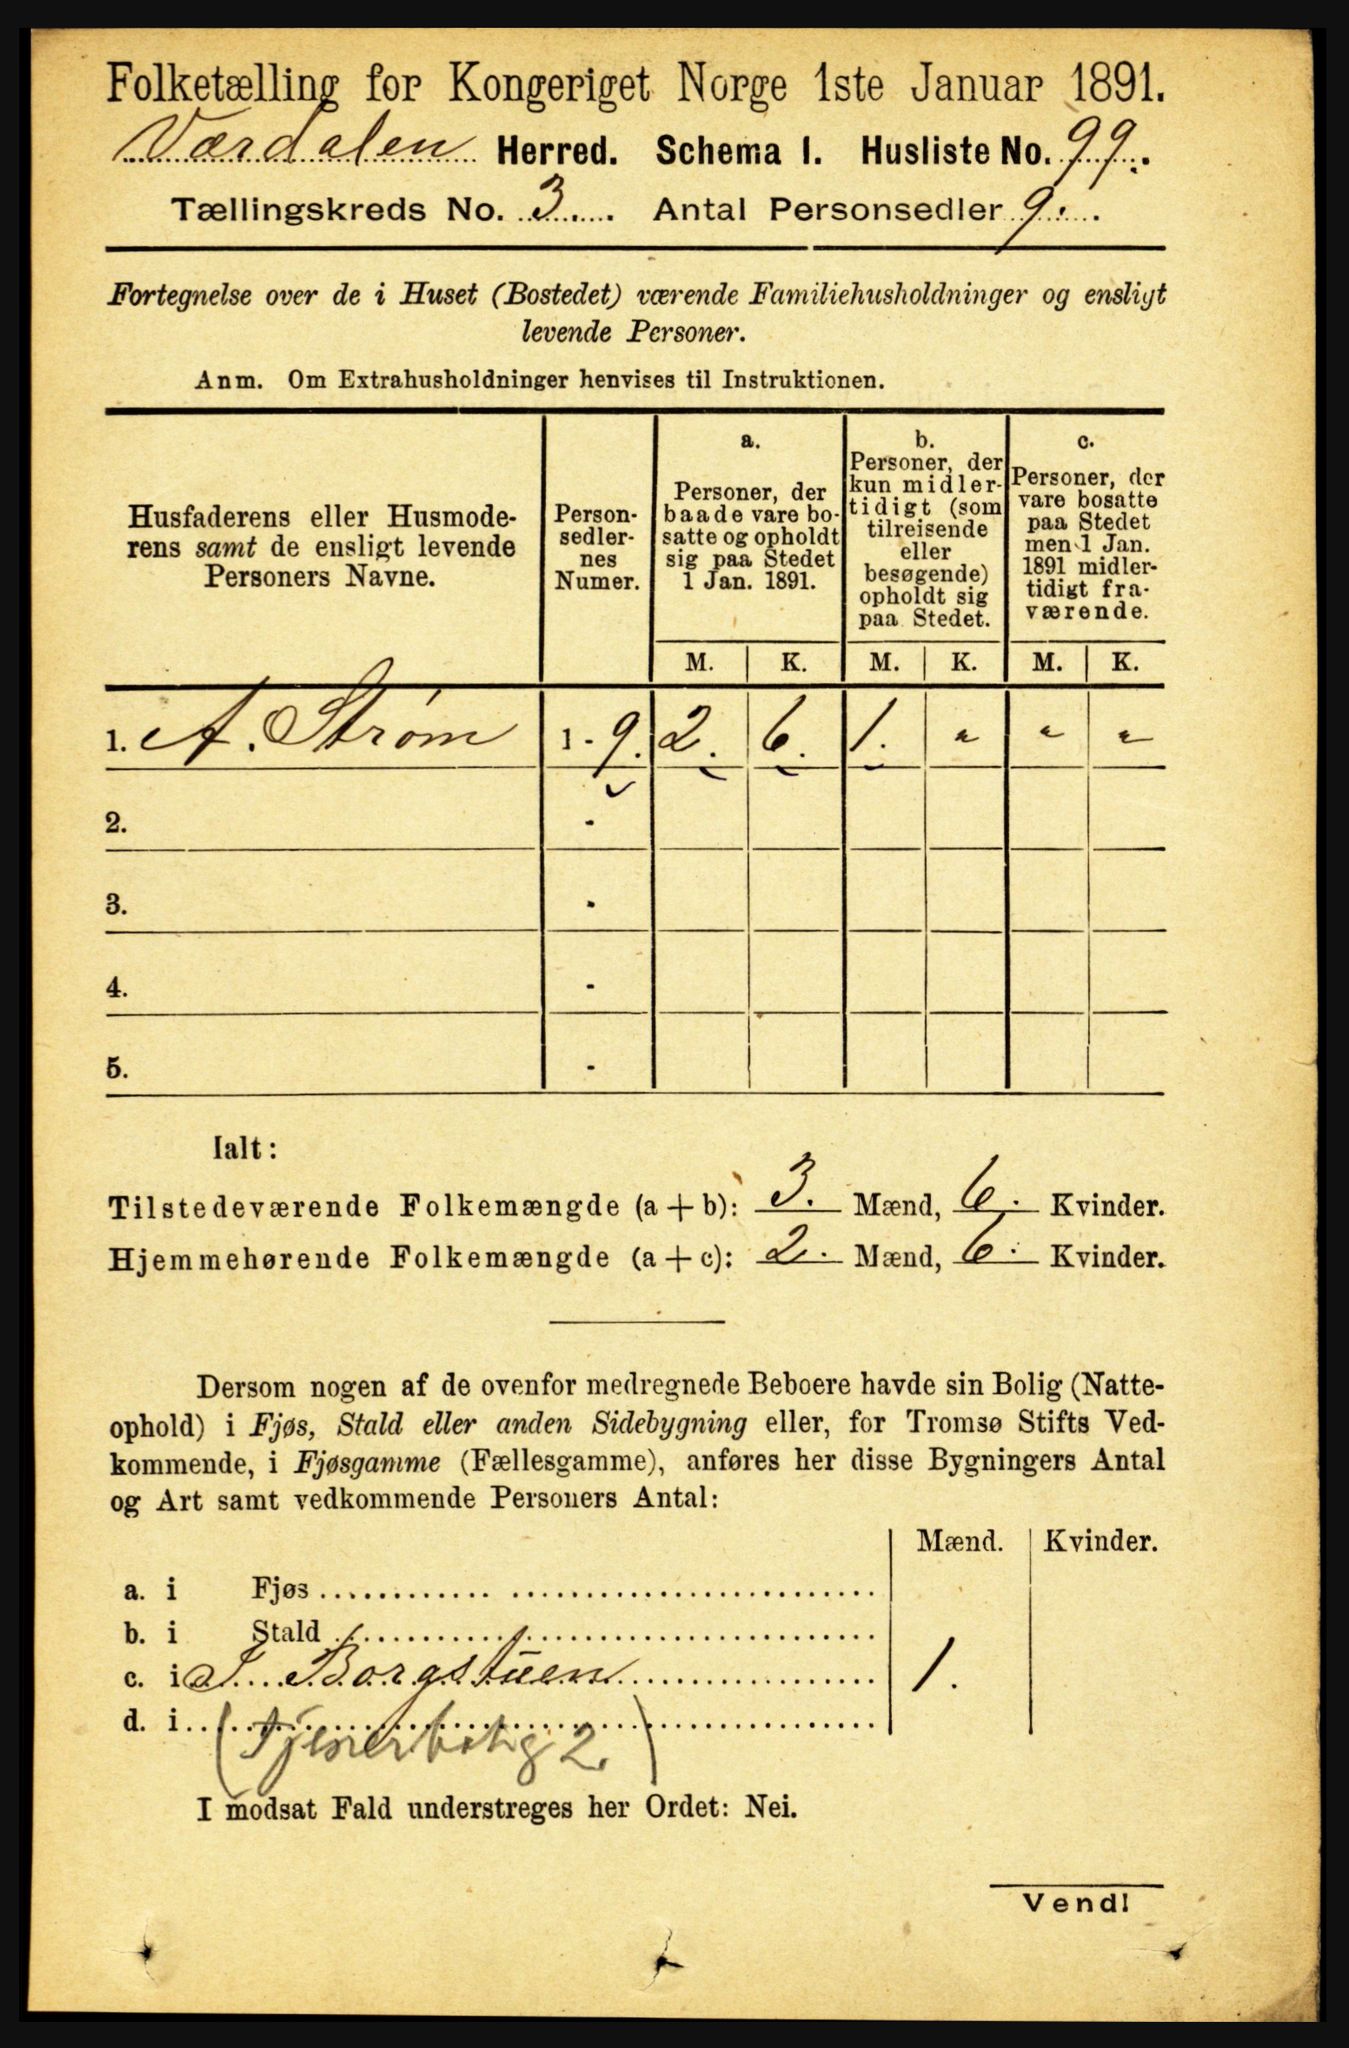 Folketælling for Kongeriget Norge 1ste Januar 1891.
Værdalen Herred. Schema I. Husliste No. 99.
Tællingskreds No. 3. Antal Personsedler 9.
Fortegnelse over de i Huset (Bostedet) værende Familiehusholdninger og ensligt
levende Personer.
Anm. Om Extrahusholdninger henvises til Instruktionen.
Husfaderens eller Husmode-
rens samt de ensligt levende
Personers Navne.
Person-
sedler-
nes
Numer.
a.
Personer, der
baade vare bo-
satte og opholdt
sig paa Stedet
1 Jan. 1891.
b.
Personer, der
kun midler-
tidigt (som
tilreisende
eller
besøgende)
opholdt sig
paa Stedet.
c.
Personer, der
vare bosatte
paa Stedet
men 1 Jan.
1891 midler-
tidigt fra-
værende.
M. K. M. K. M. K.
1. A. Strøm 1 - 9. 2. 6. 1. " " "
2. -
3. -
4. -
5. -
Ialt:
Tilstedeværende Folkemængde (a + b): 3. Mænd, 6. Kvinder.
Hjemmehørende Folkemængde (a + c): 2. Mænd, 6. Kvinder.
Dersom nogen af de ovenfor medregnede Beboere havde sin Bolig (Natte-
ophold) i Fjøs, Stald eller anden Sidebygning eller, for Tromsø Stifts Ved-
kommende, i Fjøsgamme (Fællesgamme), anføres her disse Bygningers Antal
og Art samt vedkommende Personers Antal:
Mænd. Kvinder.
a. i Fjøs
b. i Stald
c. i I Borgstuen 1.
d. i
(Tjenerbolig 2.)
I modsat Fald understreges her Ordet: Nei.
Vend!